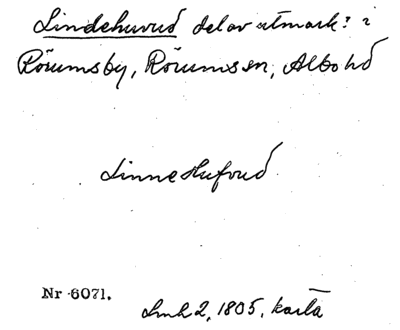 Lindehuvud del av utmark? i
Rörumsby, Rörums sn, Albo hd
Linne Hufvud
Nr 6071.
Lmh 2, 1805, karta